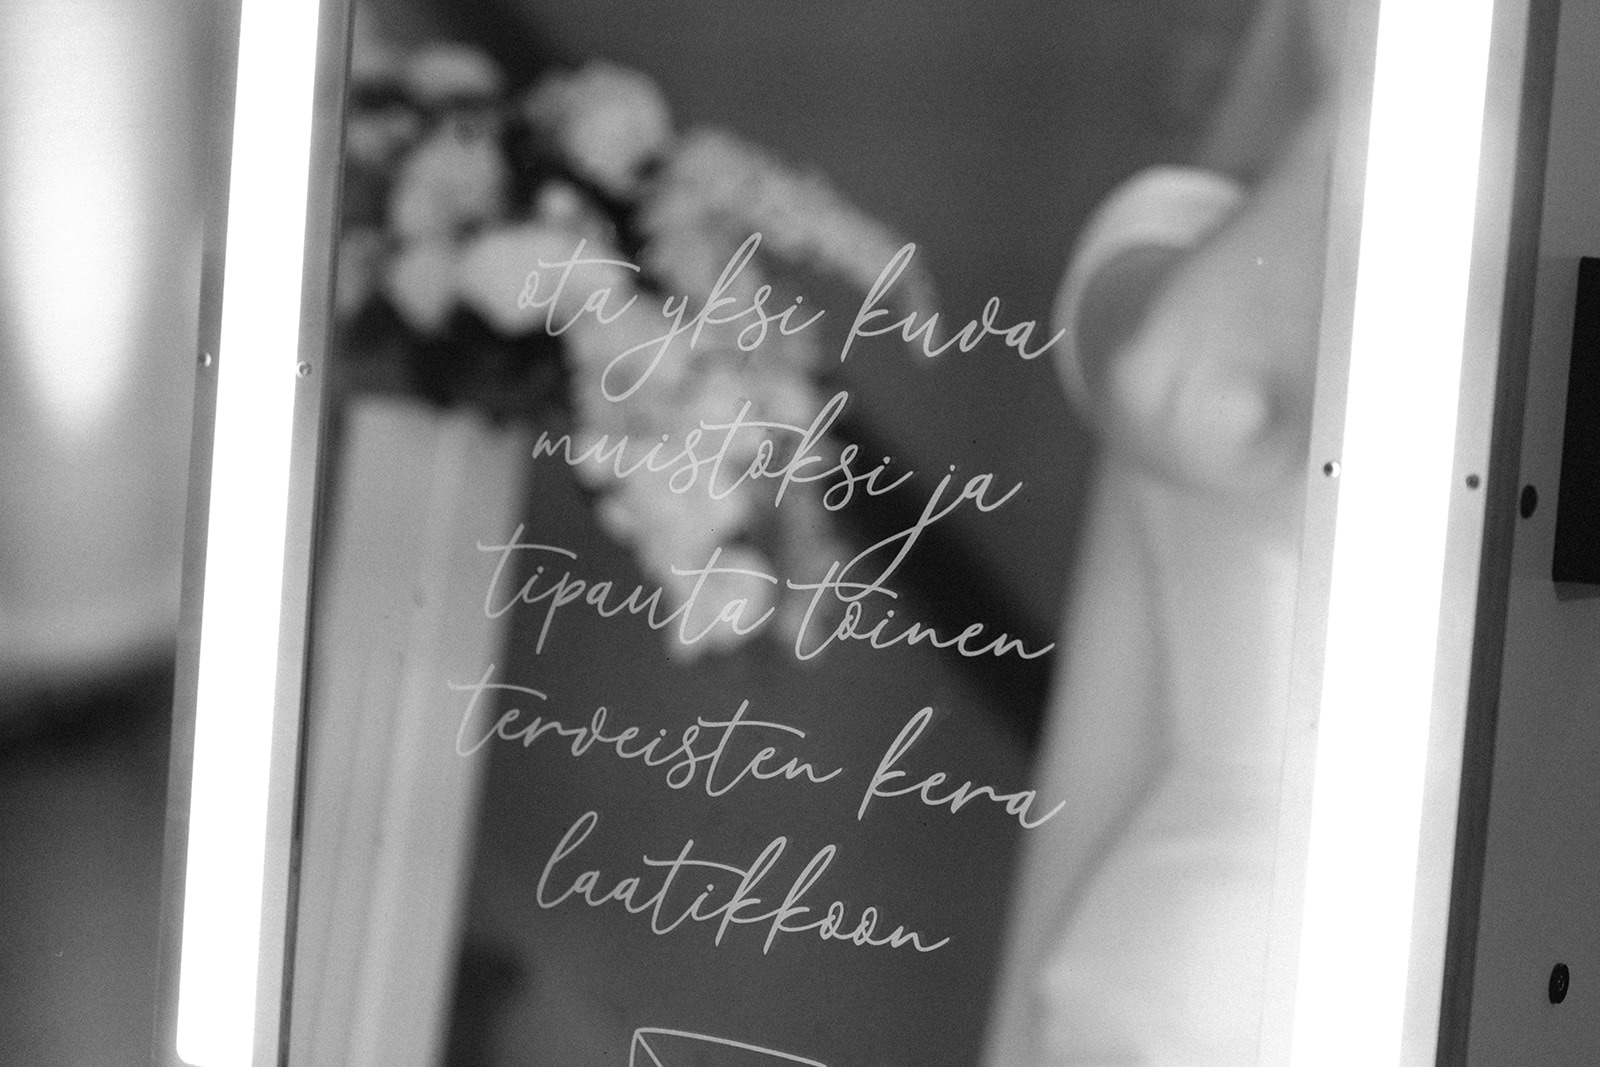 ota yksi kuva
muistoksi ja
tipauta toinen
terveisten kera
laatikkoon